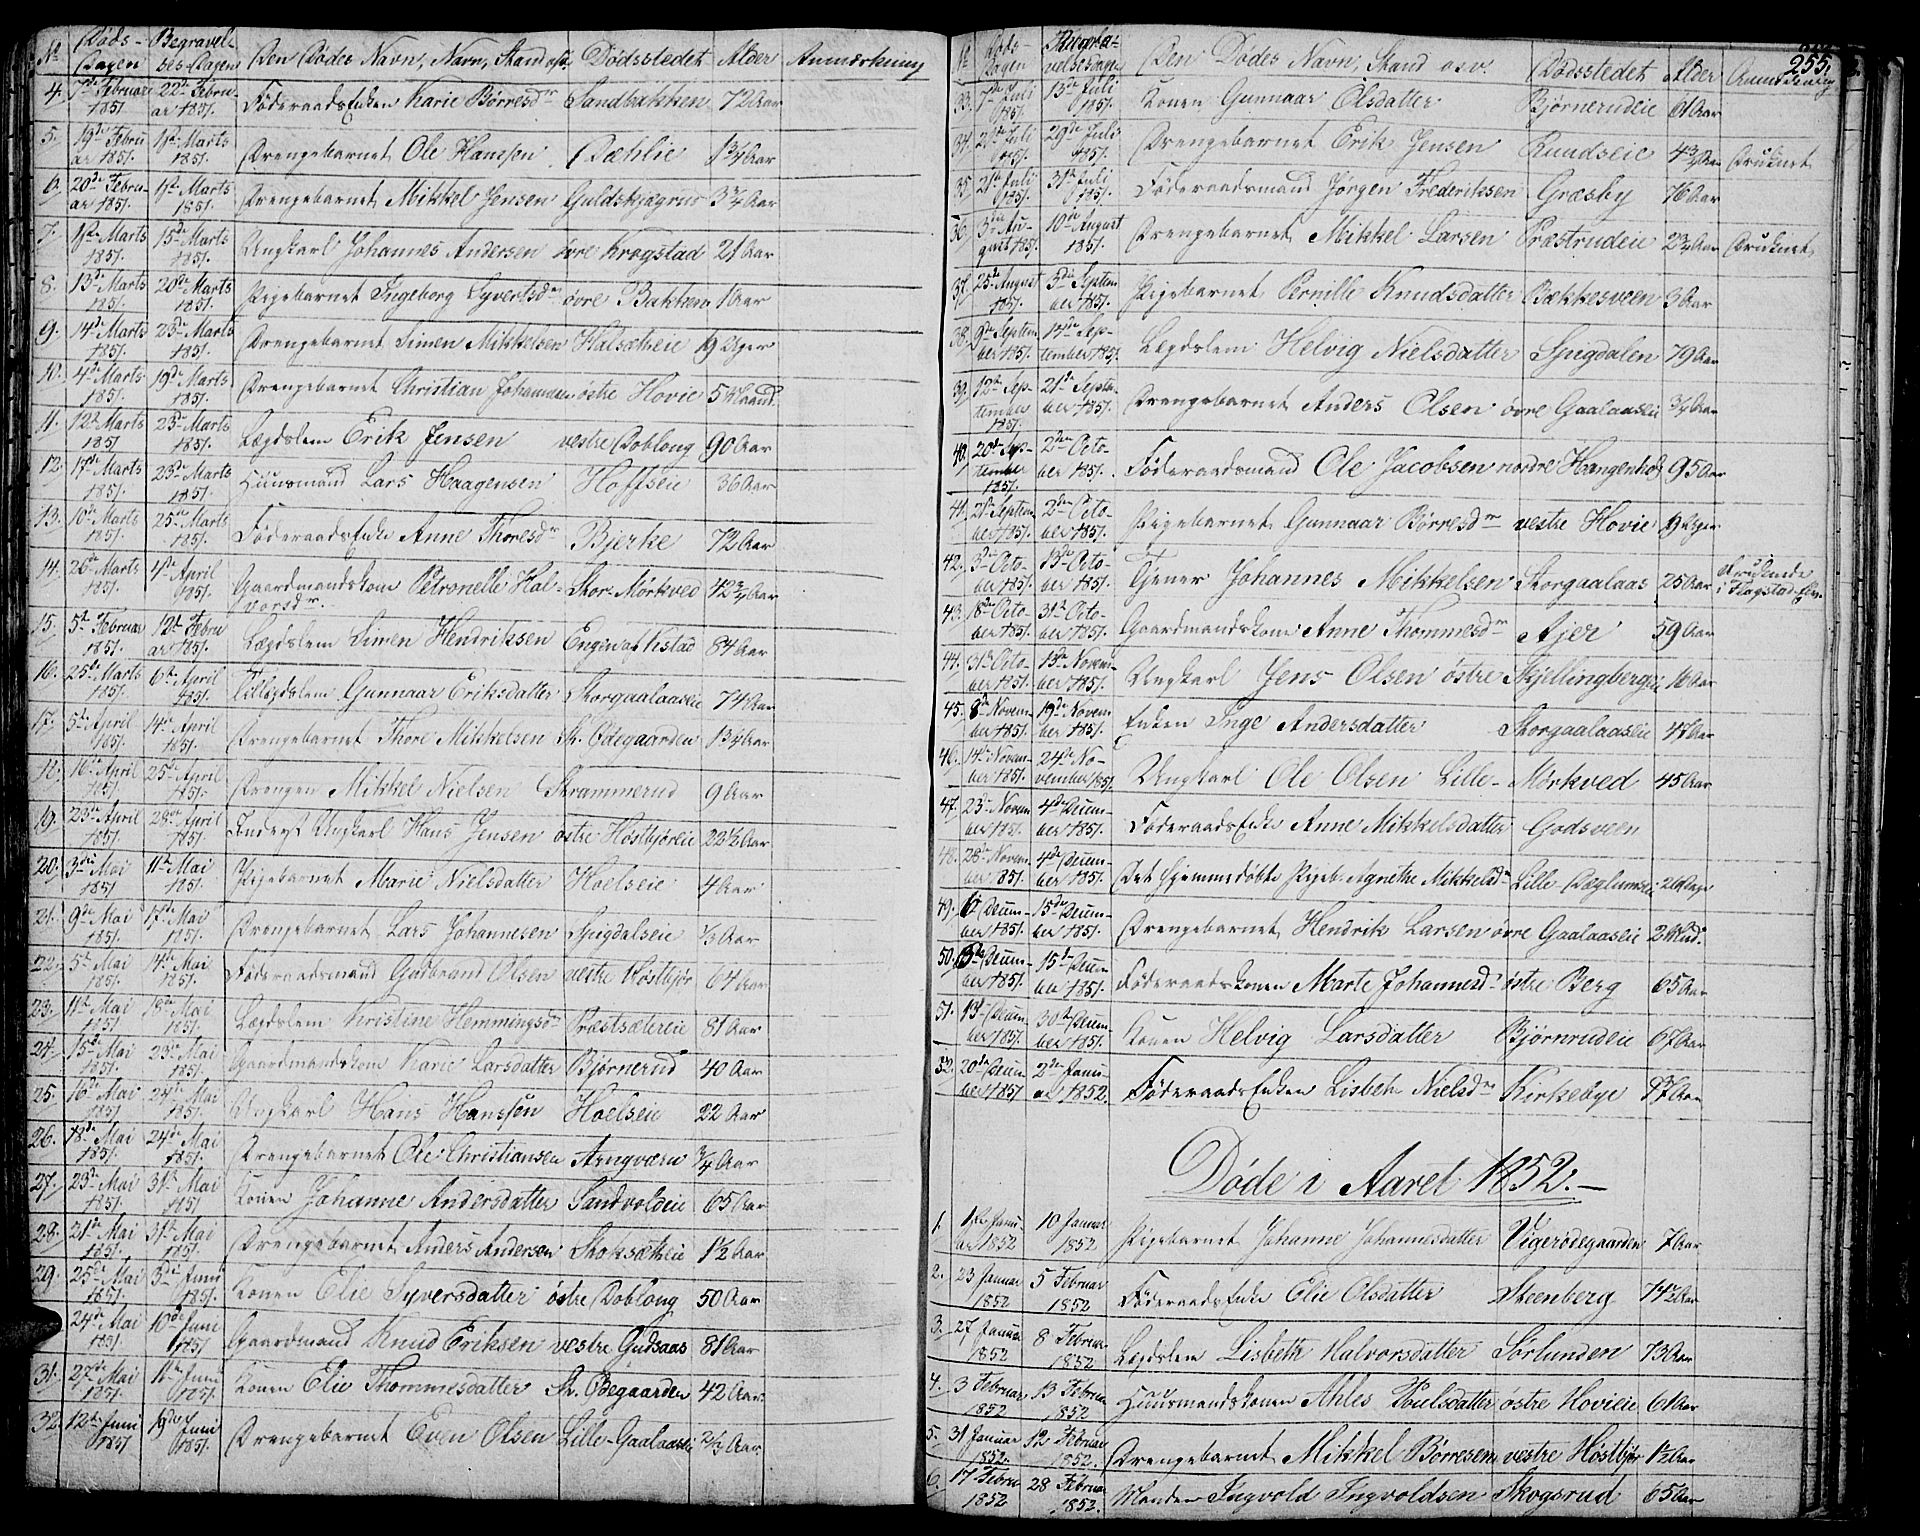 No Døds-Dagen Begravelses-Dagen Den Dødes Navn, Navn, Stand osv. Dødsstedet Alder Anmærkning
4. 7de Februar 1851 22de Februar 1851. Føderaadsenken Karie Børresdr Sandbakken 72 Aar
5. 19de Februar 1851. 1ste Marts 1851. Drengebarnet Ole Hanssen Dæhlie 1¾ Aar
6. 20de Februar 1851. 1ste Marts 1851 Drengebarnet Mikkel Jensen Guldskjægrus 3¾ Aar
7. 1ste Marts 1851. 15de Marts 1851. Ungkarl Johannes Andersen øvre Krogstad 21 Aar
8. 13de Marts 1851. 20de Marts 1851. Pigebarnet Ingeborg Syvertsdr øvre Bakken 1 Aar
9. 14de Marts 1851. 23de Marts 1851. Drengebarnet Simen Mikkelsen Halsætheie 19 Uger
10. 4de Marts 1851. 19de Marts 1851. Drengebarnet Christian Johannesen østre Hovie 5 Maand.
11. 12te Marts 1851 23de Marts 1851. Lægdslem Erik Jensen vestre Doblong 90 Aar
12. 17de Marts 1851. 23de Marts 1851. Huusmand Lars Haagensen Hoffseie 36 Aar
13. 10de Marts 1851. 25de Marts 1851. Føderaadsenke Anne Thoresdr Bjerke 72 Aar
14. 26de Marts 1851. 4de April 1851. Gaardmandskone Petronelle Halvorsdr. Stor-Mörkved 42¾ Aar
15. 5te Februar 1851. 12te Februar 1851. Lægdslem Simen Hendriksen Engen af Kistad 84 Aar
16. 25de Marts 1851. 6te April 1851. Tillægdslem Gunnaar Eriksdatter Storgaalaaseie 74 Aar
17. 5te April 1851. 14de April 1851. Drengebarnet Thore Mikkelsen St. Ødegaarden 1¾ Aar
18. 16de April 1851. 25de April 1851. Drengen Mikkel Nielsen Strammerud 9 Aar
19. 23de April 1851. 28de April 1851. Inderst Ungkarl Hans Jensen østre Höstbjöreie 22½ Aar
20. 3die Mai 1851 11te Mai 1851. Pigebarnet Marie Nielsdatter Hoelseie 4 Aar
21. 9de Mai 1851. 17de Mai 1851. Drengebarnet Lars Johannesen Spigdalseie ⅓ Aar
22. 5te Mai 1851. 14de Mai 1851. Føderaadsmand Gudbrand Olsen vestre Höstbjør 64 Aar
23. 11te Mai 1851 18de Mai 1851. Lægdslem Kristine Hemmingsdr Præstsætereie 81 Aar
24. 15de Mai 1851. 23de Mai 1851. Gaardmandskone Karie Larsdatter Bjørnerud 40 Aar
25. 16de Mai 1851 24de Mai 1851. Ungkarl Hans Hanssen Hoelseie 22 Aar
26. 18de Mai 1851. 24de Mai 1851. Drengebarnet Ole Christiansen Arngværn ¾ Aar
27. 23de Mai 1851. 31te Mai 1851 Konen Johanne Andersdatter Sandvoldeie 65 Aar
28. 21de Mai 1851. 31te Mai 1851. Drengebarnet Anders Andersen Stoksætheie 1½ Aar
29. 25de Mai 1851. 3die Juni 1851. Konen Elie Syversdatter østre Doblong 50 Aar
24de Mai 1851. 10de Juni 1851 Gaardmand Knud Eriksen vestre Gudsaas 81 Aar
31. 27de Mai 1851. 11te Juni 1851. Konen Elie Thommesdatter St. Øegaarden 42 Aar.
32. 12te Juni 1851 19de Juni 1851. Drengebarnet Even Olsen Lille-Gaalaaseie 2½ Aar
255.
No Døds-Dagen Begravelsesdag Den Dødes Navn, Stand osv. Dødsstedet Alder Anmærkning
33. 7de Juli 1851. 13de Juli 1851. Konen Gunnaar Olsdatter Bjørnerudeie 61 Aar
34. 21de Juli 1851. 29de Juli 1851. Drengebarnet Erik Jensen Ruudseie 4¾ Aar Druknet
35. 21de Juli 1851. 31te Juli 1851. Føderaadsmand Jørgen Frederiksen Græsby 76 Aar
36. 3die August 1851. 10de August 1851. Drengebarnet Mikkel Larsen Præstrudeie 2¾ Aar Druknet.
37. 25de August 1851. 3die September 1851. Pigebarnet Pernille Knudsdatter Bækkesveen 3 Aar
38. 9de September 1851. 14de September 1851. Lægdslem Helvig Nielsdatter Spigdalen 79 Aar
39. 12te September 1851. 21de September 1851. Drengebarnet Anders Olsen øvre Gaalaaseie ¾ Aar
40. 20de September 1851. 2den October 1851. Føderaadsmand Ole Jacobsen nordre Hangenhol 95 Aar
41. 21de September 1851. 2den October 1851. Pigebarnet Gunnaar Børresdr vestre Hovie 19 Uger
42. 3die October 1851. 13de October 1851. Tjener Johannes Mikkelsen Storgaalaas 25 Aar druknede i Flagstad-Elv.
43. 18de October 1851. 31te October 1851. Gaardmandskone Anne Thommesdr Ajer 59 Aar
44. 31te October 1851. 13de November 1851. Ungkarl Jens Olsen østre Skjellingbergeie 16 Aar
45. 8de November 1851. 19de November 1851. Enken Inge Andersdatter Storgaalaaseie 47 Aar
46. 14de November 1851. 24de November 1851. Ungkarl Ole Olsen Lille-Mørkved 45 Aar
47. 23de November 1851. 4de December 1851. Føderaadsenke Anne Mikkelsdatter Godsveen
48. 28de November 1851. 4de December 1851. Det hjemmedøbte Pigeb. Agnethe Mikkelsdr Lille Dæglumseie 26 Dage
49. 6te December 1851. 15de December 1851. Drengebarnet Hendrik Larsen øvre Gaalaaseie 2 Mnd.
50. December 1851. 15de December 1851. Føderaadskonen Marte Johannesdr østre Berg 65 Aar
51. 19de December 1851. 30te December 1851. Konen Helvig Larsdatter Bjørnrudeie 67 Aar
52. 20de December 1851 2den Januar 1852. Føderaadsenken Lisbeth Nielsdr Kirkebye Aar
Døde i Aaret 1852.
1. 1ste Januar 1852 10 Januar 1852 Pigebarnet Johanne Johannesdatter Vigerødegaarden 7 Aar
2. 23 Januar 1852 5 Februar 1852 Føderaadsenke Elie Olsdatter Steenberg 74½ Aar
3. 27 Januar 1852 8 Februar 1852 Lægdslem Lisbeth Halvorsdatter Sørlunden 73 Aar
4. 3 Februar 1852 13 Februar 1852 Huusmandskonen Ahles Poulsdatter østre Hovieie 61 Aar
5. 31 Januar 1852. 12 Februar 1852. Drengebarnet Mikkel Børresen vestre Høstbjør 1½ Aar
6. 17 Februar 1852 28 Februar 1852. Manden Ingvold Ingvoldsen Skogsrud 65 Aar